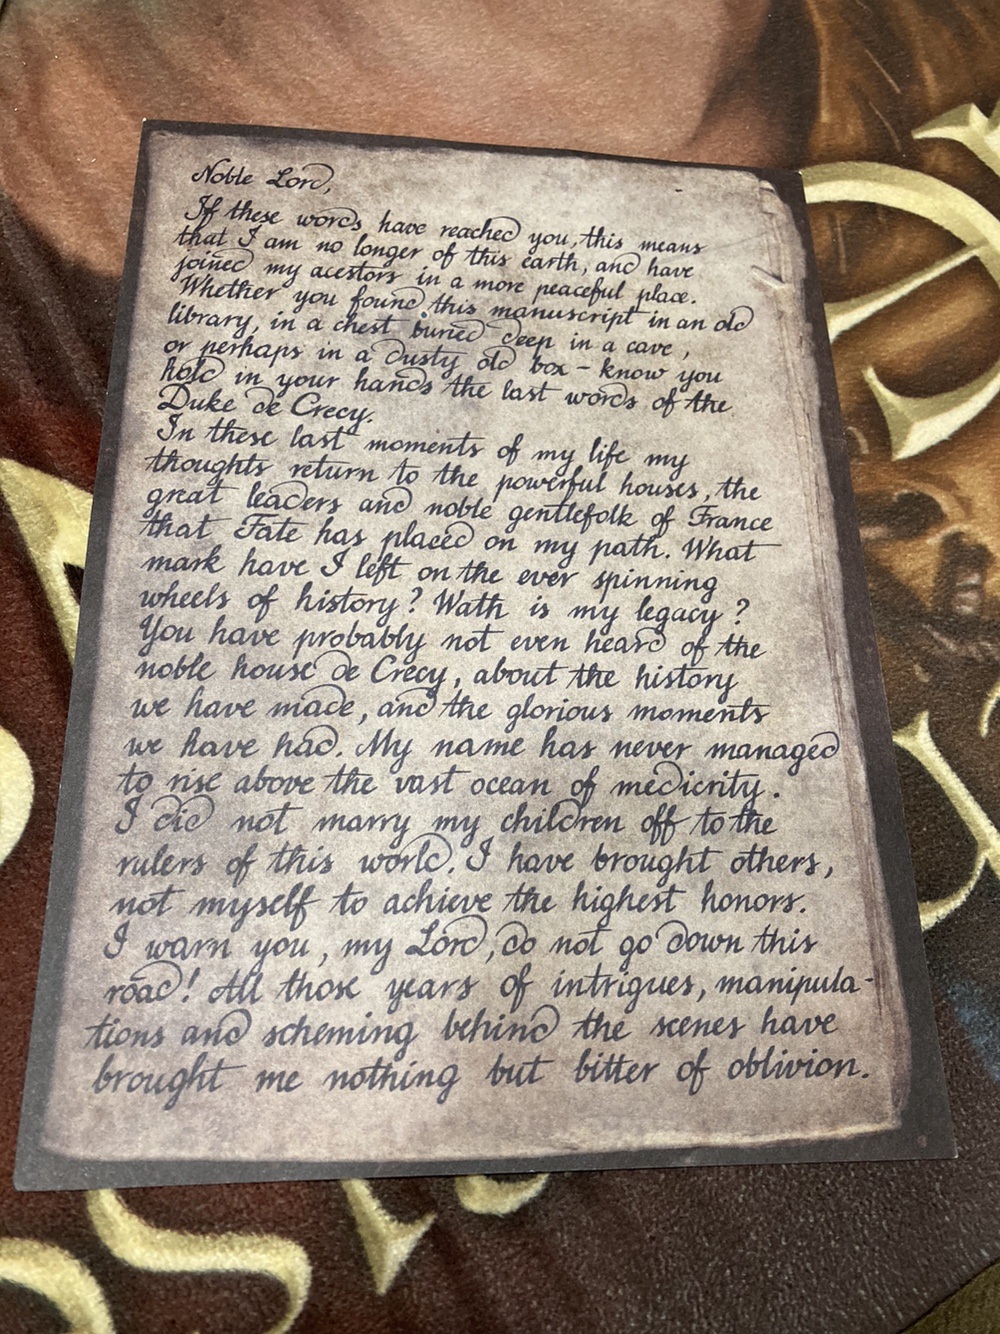 Noble Lord,
If these words have reached you, this means
that I am no longer of this earth, and have
joined my acestors in a more peaceful place.
Whether you found this manuscript in an old
library, in a chest buried deep in a cave,
or perhaps in a dusty old box – know you
hold in your hands the last words of the
Duke de Crecy.
In these last moments of my life my
thoughts return to the powerful houses, the
great leaders and noble gentlefolk of France
that Fate has placed on my path. What
mark have I left on the ever spinning
wheels of history? Wath is my legacy?
You have probably not even heard of the
noble house de Crecy, about the history
we have made, and the glorious moments
we have had. My name has never managed
to rise above the vast ocean of medicrity.
I did not marry my children off to the
rulers of this world. I have brought others,
not myself to achieve the highest honors.
I warn you, my Lord, do not go down this
road! All those years of intrigues, manipula-
tions and scheming behind the scenes have
brought me nothing but bitter of oblivion.